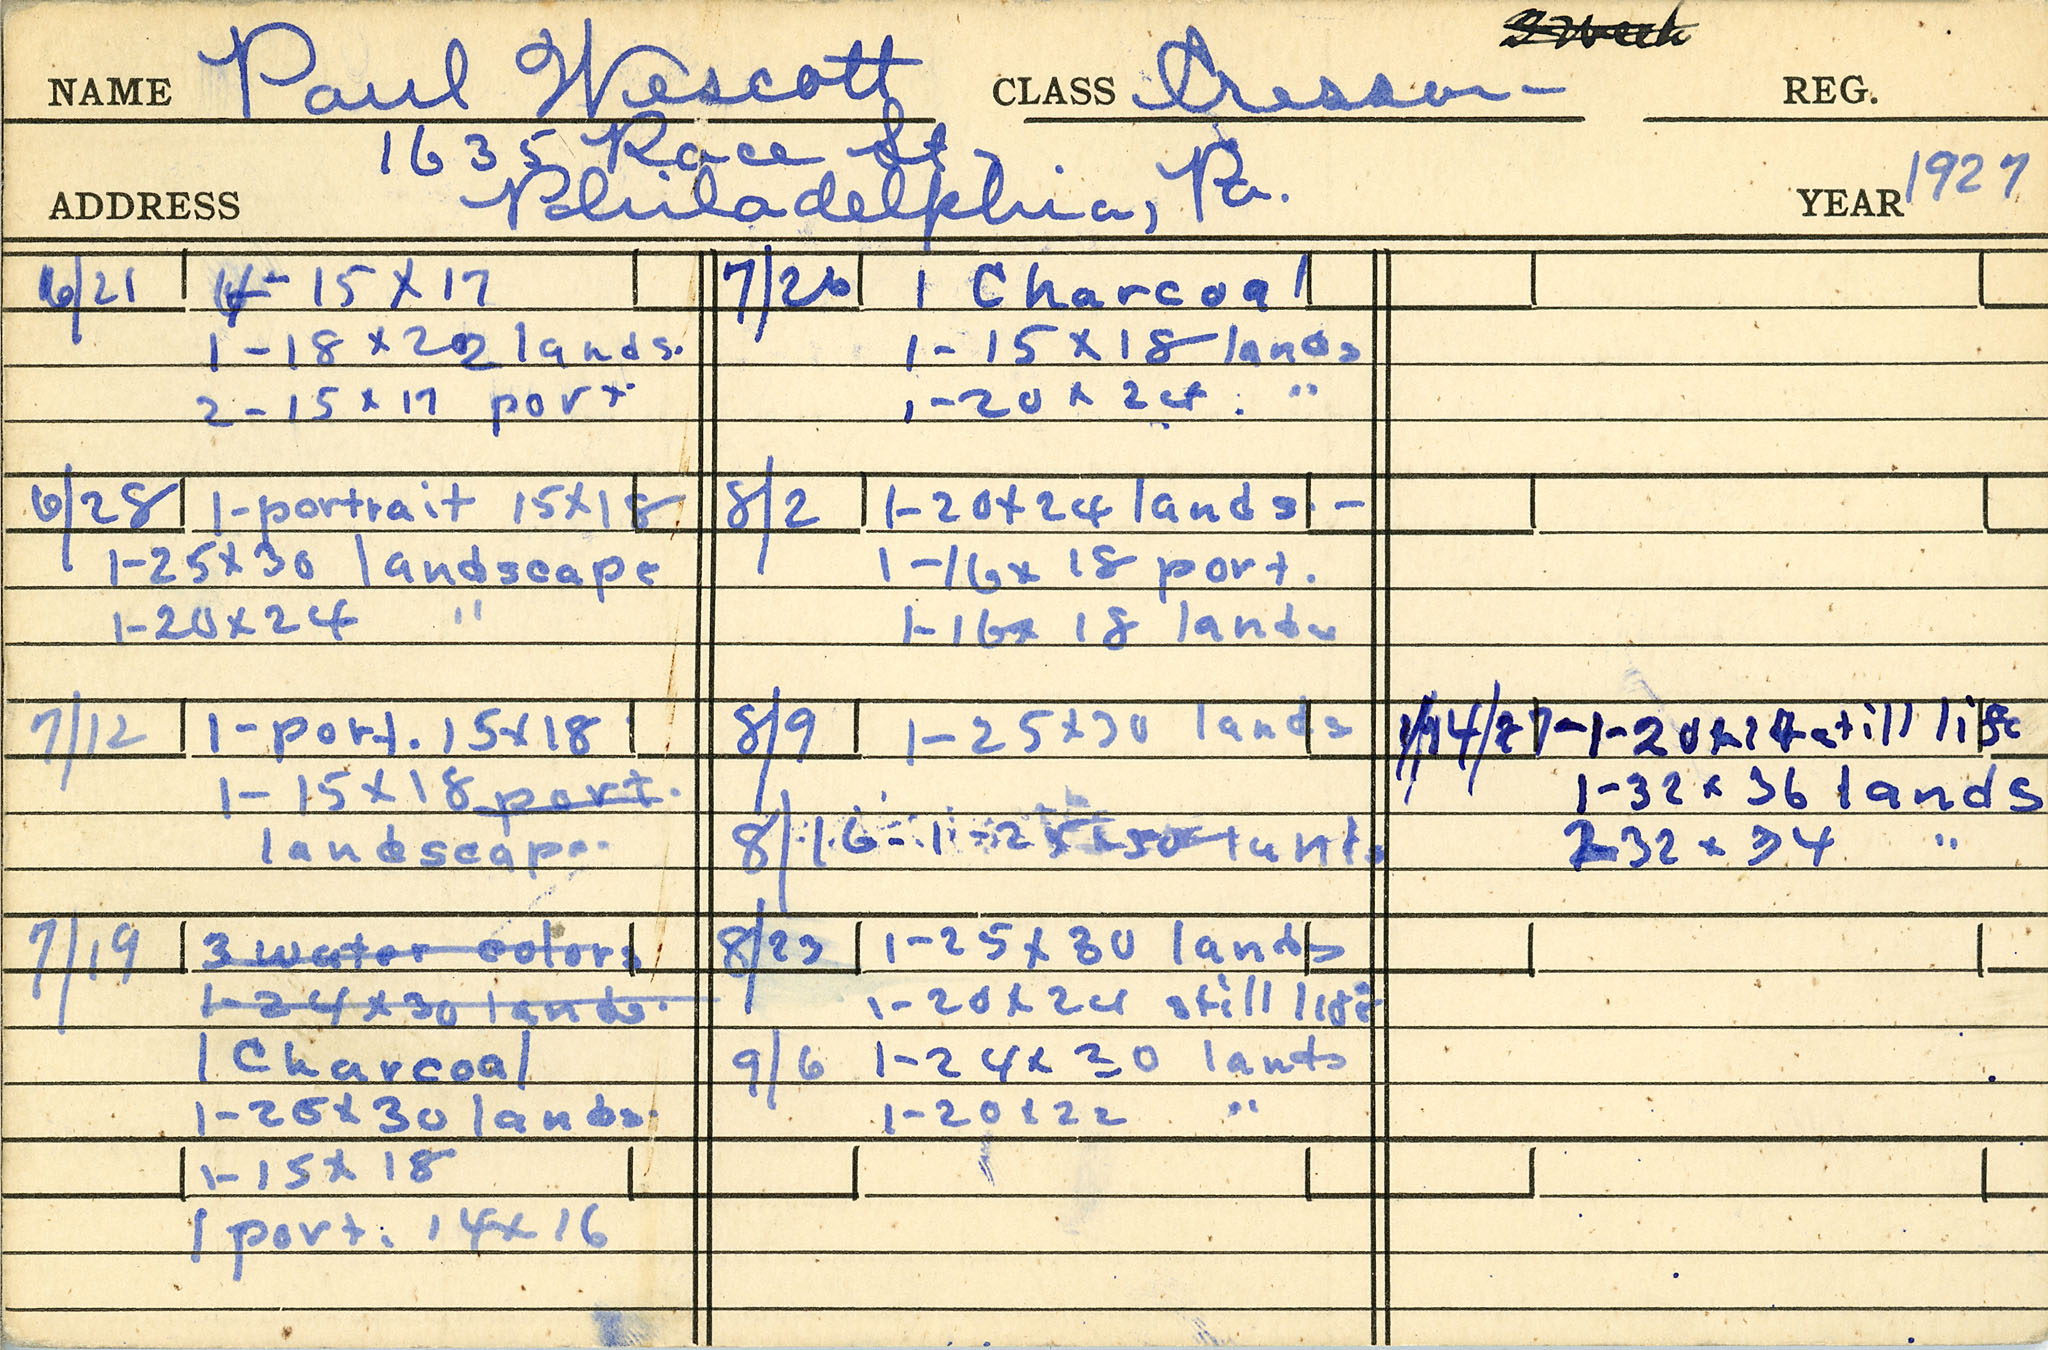 NAME Paul Wescott CLASS Cresson - REG.
1635 Race St.,
ADDRESS Philadelphia, Pa. YEAR 1927
6/21 15 x 17
1 - 18 x 22 lands.
2 - 15 x 17 port.
6/28 1 - portrait 15 x 18
1 - 25 x 30 landscape
1 - 20 x 24 "
7/12 1 - port. 15 x 18
1 - 15 x 18 port.
landscape.
7/19 3 water colors
1 - 24 x 30 lands.
1 Charcoal
1 - 25 x 30 lands.
1 - 15 x 18
1 port. 14 x 16
7/26 1 Charcoal
1 - 15 x 18 lands
1 - 20 x 24. "
8/2 1 - 20 x 24 lands. -
1 - 16 x 18 port.
1 - 16 x 18 lands
8/9 1 - 25 x 30 lands
8/16 - 1 - 25 x 30 lands
8/23 1 - 25 x 30 lands
1 - 20 x 24 still life
9/6 1 - 24 x 30 lands
1 - 20 x 22 "
1 - 20 x 24 still life
1 - 32 x 36 lands
32 x 34 "